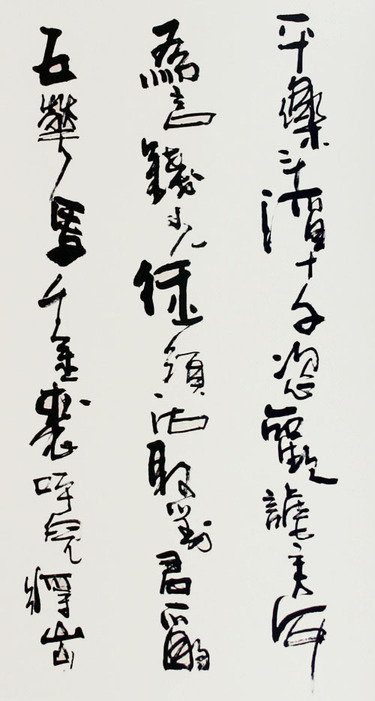 平樂斗酒十千恣歡謔主人何
為言錢少徑須沽取對君酌
五花馬千金裘呼兒將出